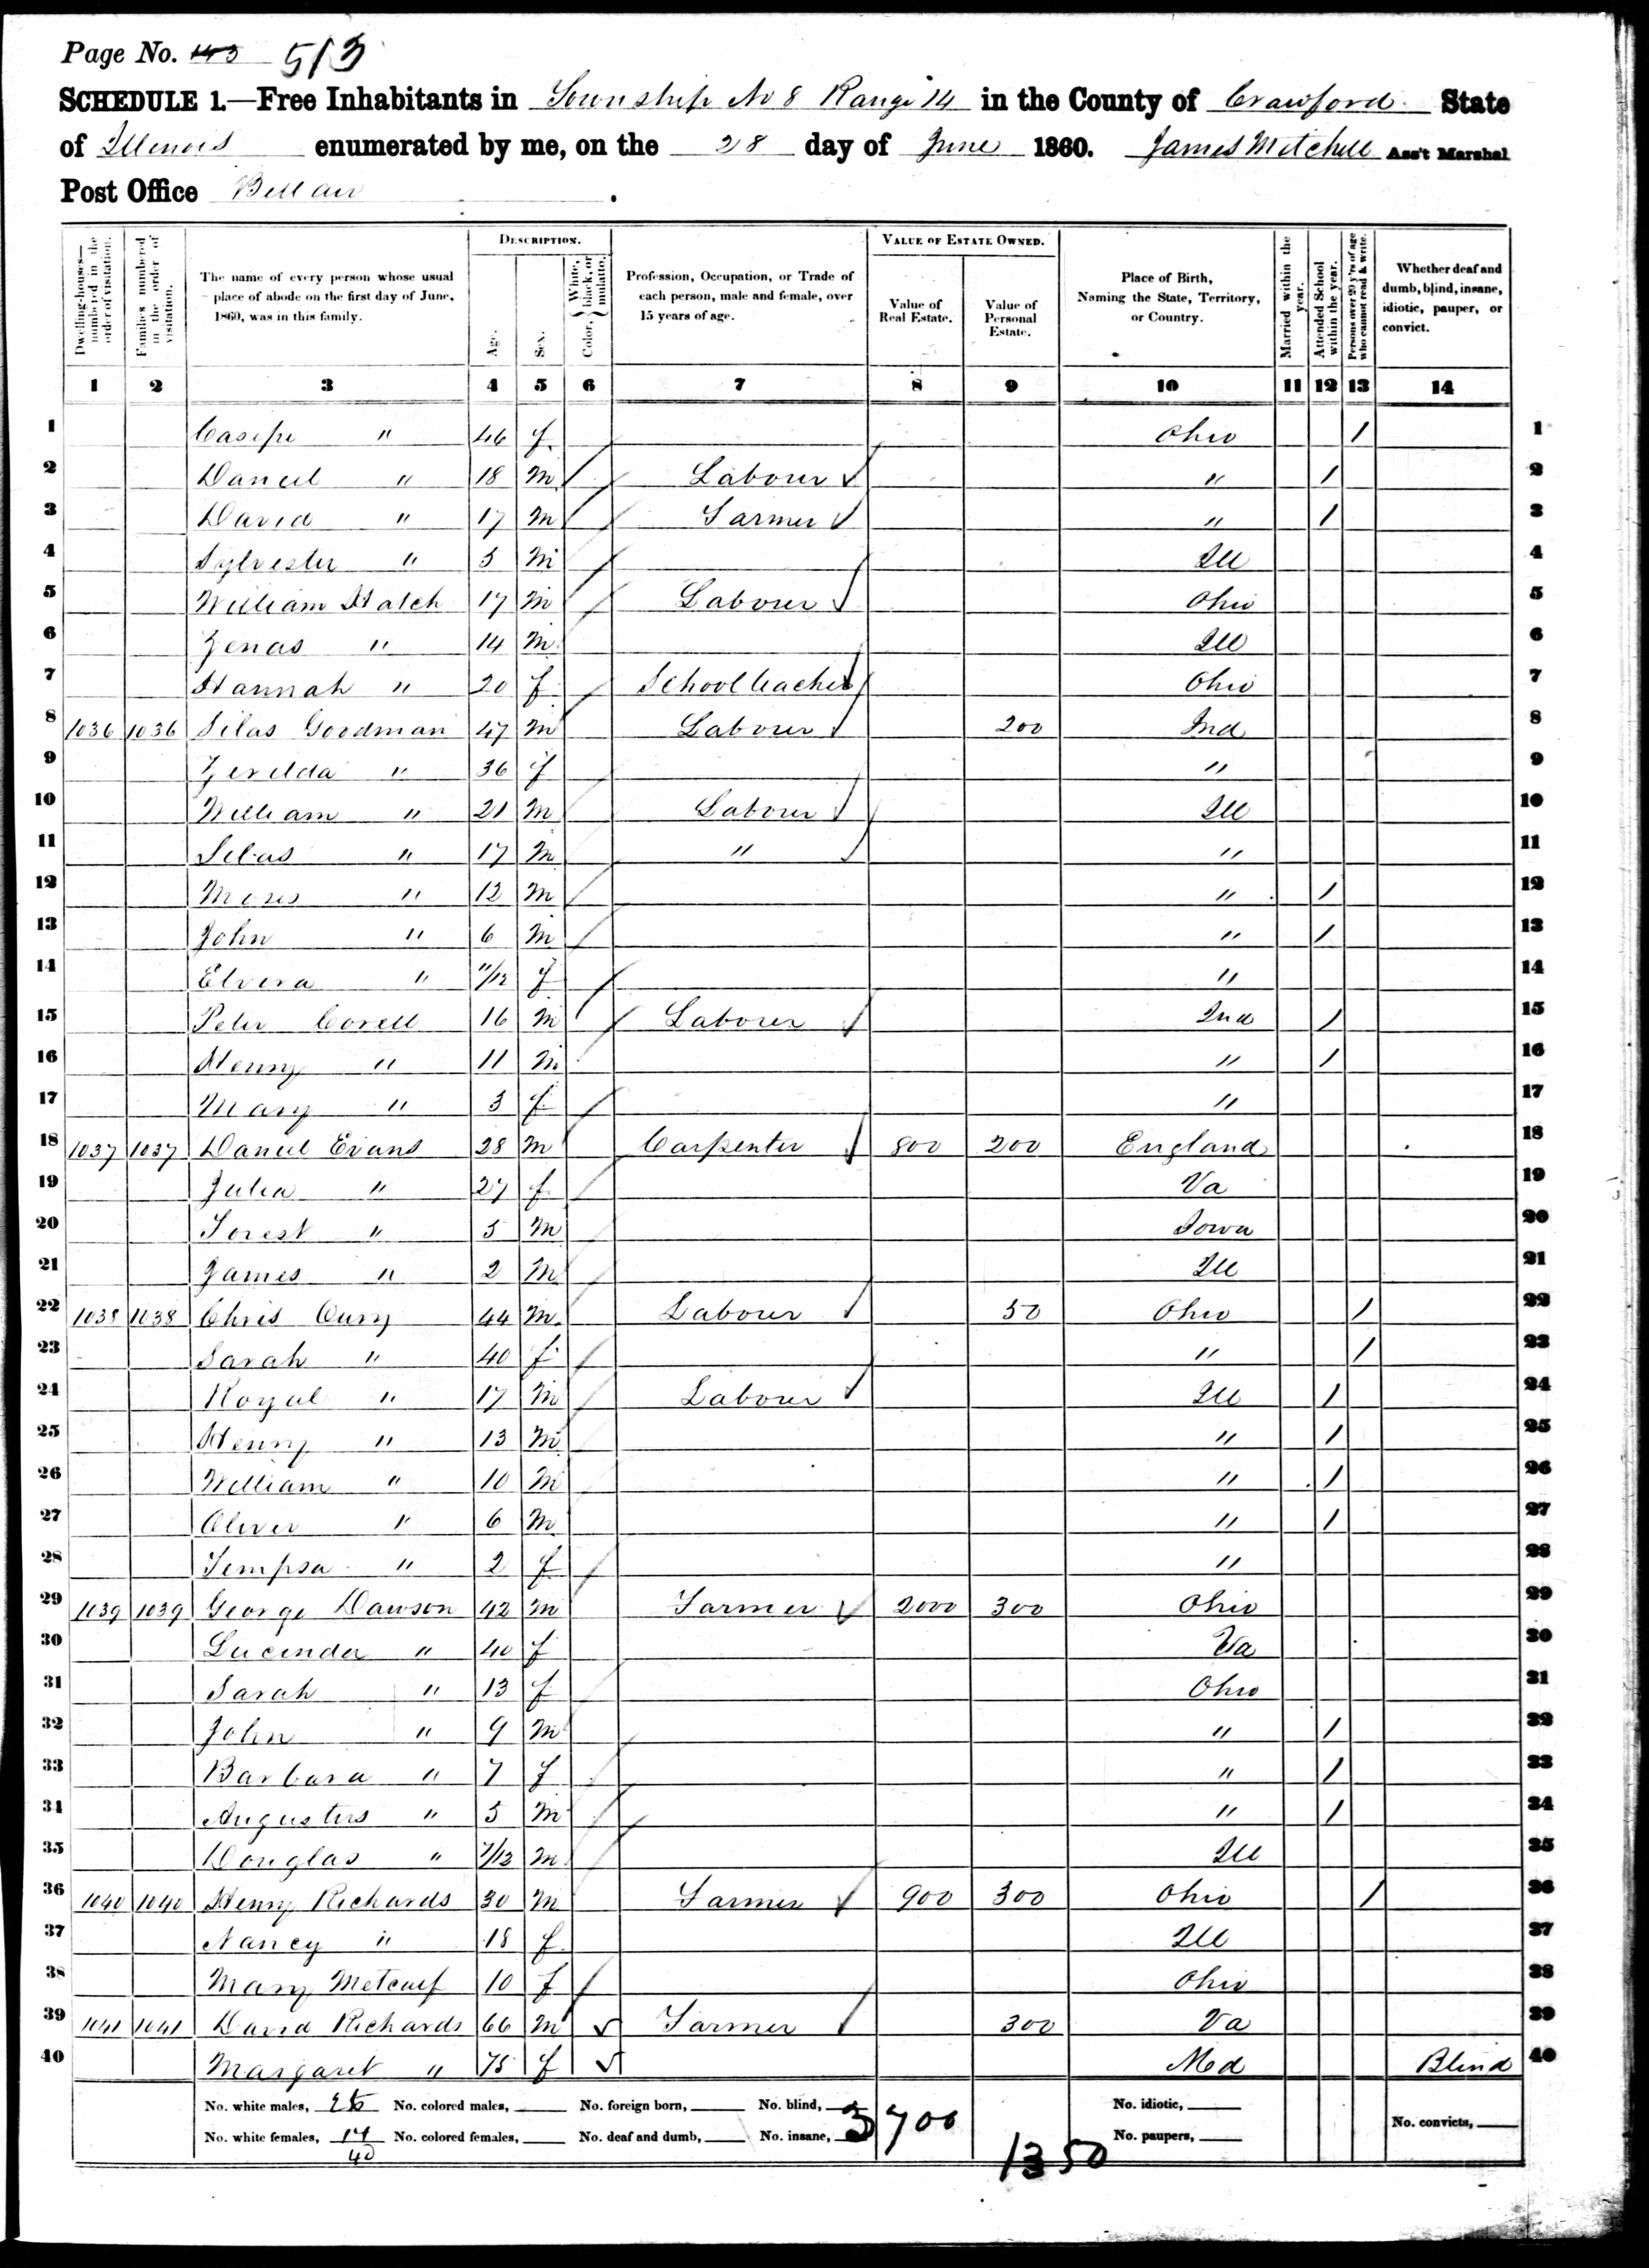 Page No. 143 513
SCHEDULE 1.—Free Inhabitants in Township No 8 Range 14 in the County of Crawford State
of Illinois enumerated by me, on the 28 day of June 1860. James Mitchell Ass't Marshal
Post Office Bellair
Dwelling-houses—numbered in the order of visitation.
Families numbered in the order of visitation.
The name of every person whose usual place of abode on the first day of June, 1860, was in this family.
DESCRIPTION.
Age.
Sex.
Color, White, black, or mulatto.
Profession, Occupation, or Trade of each person, male and female, over 15 years of age.
VALUE OF ESTATE OWNED.
Value of Real Estate.
Value of Personal Estate.
Place of Birth, Naming the State, Territory, or Country.
Married within the year.
Attended School within the year.
Persons over 20 y'rs of age who cannot read & write.
Whether deaf and dumb, blind, insane, idiotic, pauper, or convict.
1 2 3 4 5 6 7 8 9 10 11 12 13 14
1 " 46 f Ohio / 1
2 Daniel " 18 m Labourer " / 2
3 David " 17 m Farmer " / 3
4 Sylvester " 5 m Ill 4
5 William Hatch 17 m Labourer Ohio 5
6 Zenas " 14 m Ill 6
7 Hannah " 20 f School teacher Ohio 7
8 1036 1036 Silas Goodman 47 m Labourer 200 Ind 8
9 Zerelda " 36 f " 9
10 William " 21 m Labourer Ill 10
11 Silas " 17 m " " 11
12 Moses " 12 m " / 12
13 John " 6 m " / 13
14 Elvira " 11/12 f " 14
15 Peter Corell 16 m Labourer Ind / 15
16 Henry " 11 m " / 16
17 Mary " 3 f " 17
18 1037 1037 Daniel Evans 28 m Carpenter 800 200 England 18
19 Julia " 27 f Va 19
20 Forest " 5 m Iowa 20
21 James " 2 m Ill 21
22 1038 1038 Chris Cury 44 m Labourer 50 Ohio / 22
23 Sarah " 40 f " / 23
24 Royal " 17 m Labourer Ill / 24
25 Henry " 13 m " / 25
26 William " 10 m " / 26
27 Oliver " 6 m " / 27
28 Tempsa " 2 f " 28
29 1039 1039 George Dawson 42 m Farmer 2000 300 Ohio 29
30 Lucinda " 40 f Va 30
31 Sarah " 13 f Ohio 31
32 John " 9 m " / 32
33 Barbara " 7 f " / 33
34 Augustus " 5 m " / 34
35 Douglas " 7/12 m Ill 35
36 1040 1040 Henry Richards 30 m Farmer 900 300 Ohio / 36
37 Nancy " 18 f Ill 37
38 Mary Metcalf 10 f Ohio 38
39 1041 1041 David Richards 66 m Farmer 300 Va 39
40 Margaret " 75 f Md Blind 40
No. white males, 26 No. colored males, No. foreign born, No. blind, No. idiotic,
No. white females, 14 No. colored females, No. deaf and dumb, No. insane, 3700 No. paupers, No. convicts,
40 1350